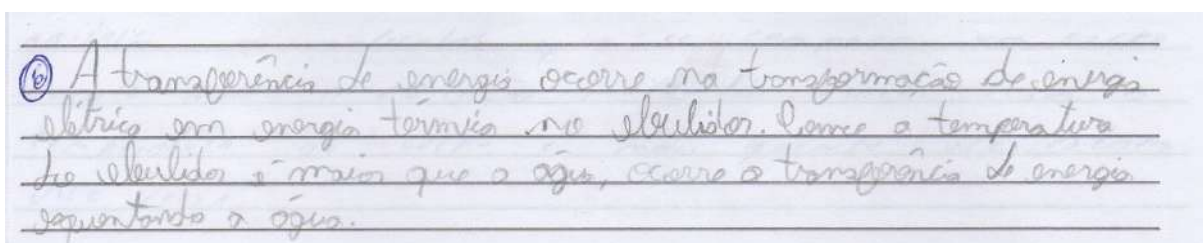 6 A transferência de energia ocorre na transformação de energia
elétrica em energia térmica no ebulidor. Como a temperatura
do ebulidor é maior que a água, ocorre a transferência de energia
esquentando a água.